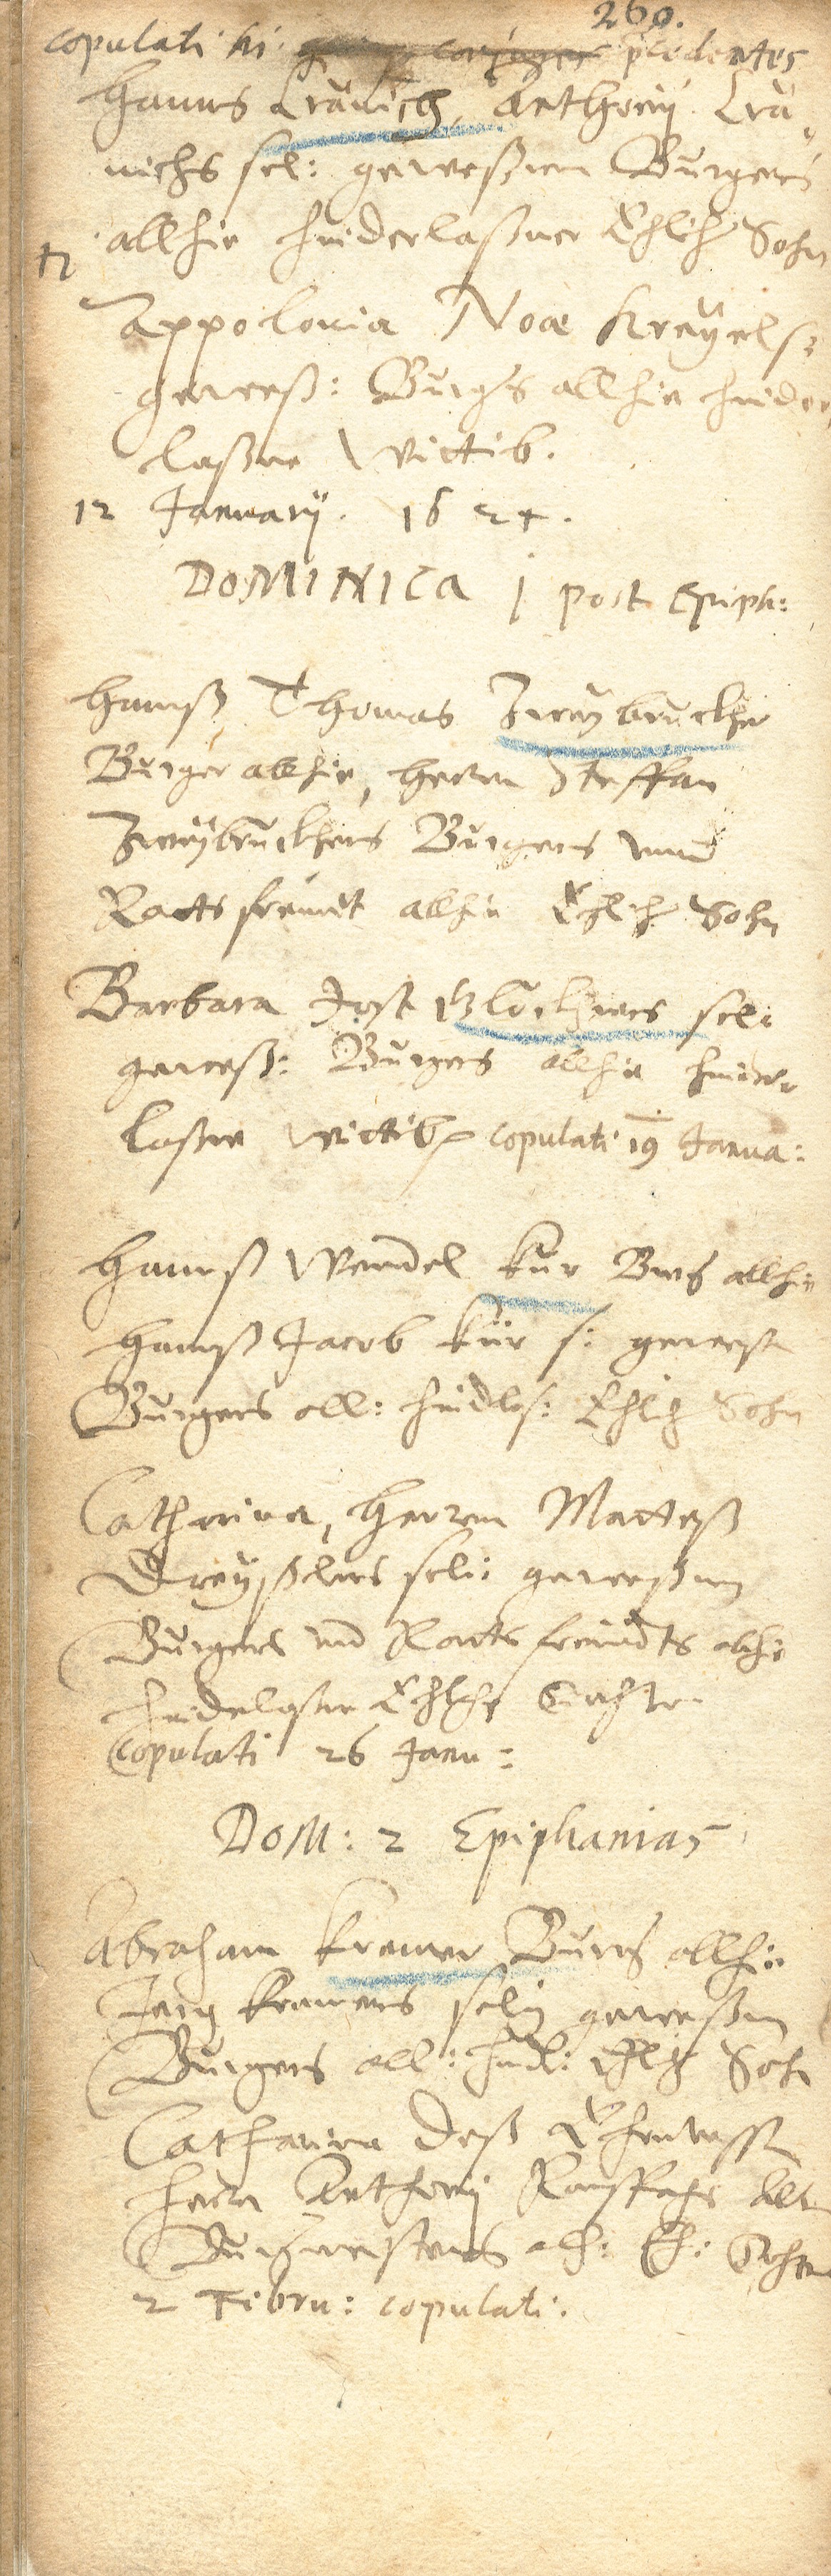 260.
copulati hi conjuges p̄cedentes
Hanns Cränich, Anthonij Crä,
nichs sel: geweßnen Burgers
allhie hinderlaßner Ehlich Sohn
Appolonia Noæ Kreyels:
geweß: Burgers allhie hinder,
laßne Wittib.
12 Januarij. 1624.
DOMINICA j post Epiph:
Hannß Thomas Zweybrucker
Burger allhie, herren Steffan
Zweybruckhers Burgers vnnd
Rattsfreundt allhie Ehlich Sohn
Barbara Jost Glöckhners sel:
geweß: Burgers allhie hinder
laßne wittib copulati 19 Janua:
Hannß Wendel Kür Burg allhie
Hannß Jacob Kür s: geweßn
Burgers all: hindlas: Ehlich Sohn
Catharina, Herren Matteß
Dreyßchers sel: geweßnen
Burgers vnd Rattsfreundts alhie
hinderlaßne Ehliche Tochter
copulati 26 Janu:
DOM: 2 Epiphanias
Abraham Kremer Burg allhie
Jerg Kremers selig geweßnen
Burgers all: hindl: Ehlich Sohn
Catharina deß Ehrnvesten
herrn Anthonij alt
Burgermeisters alh: Eh: Tochter
2 Febru: copulati.